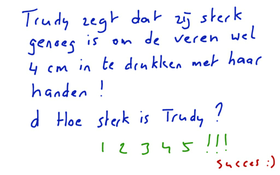 Trudy zegt dat zij sterk
genoeg is om de veren wel
4 cm in te drukken met haar
handen !
d Hoe sterk is Trudy ?
1 2 3 4 5 !!!
Succes :)